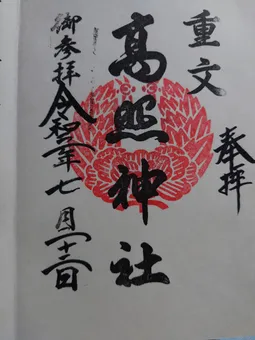 重文
奉拝
高照神社
御参拝 令和二年七月